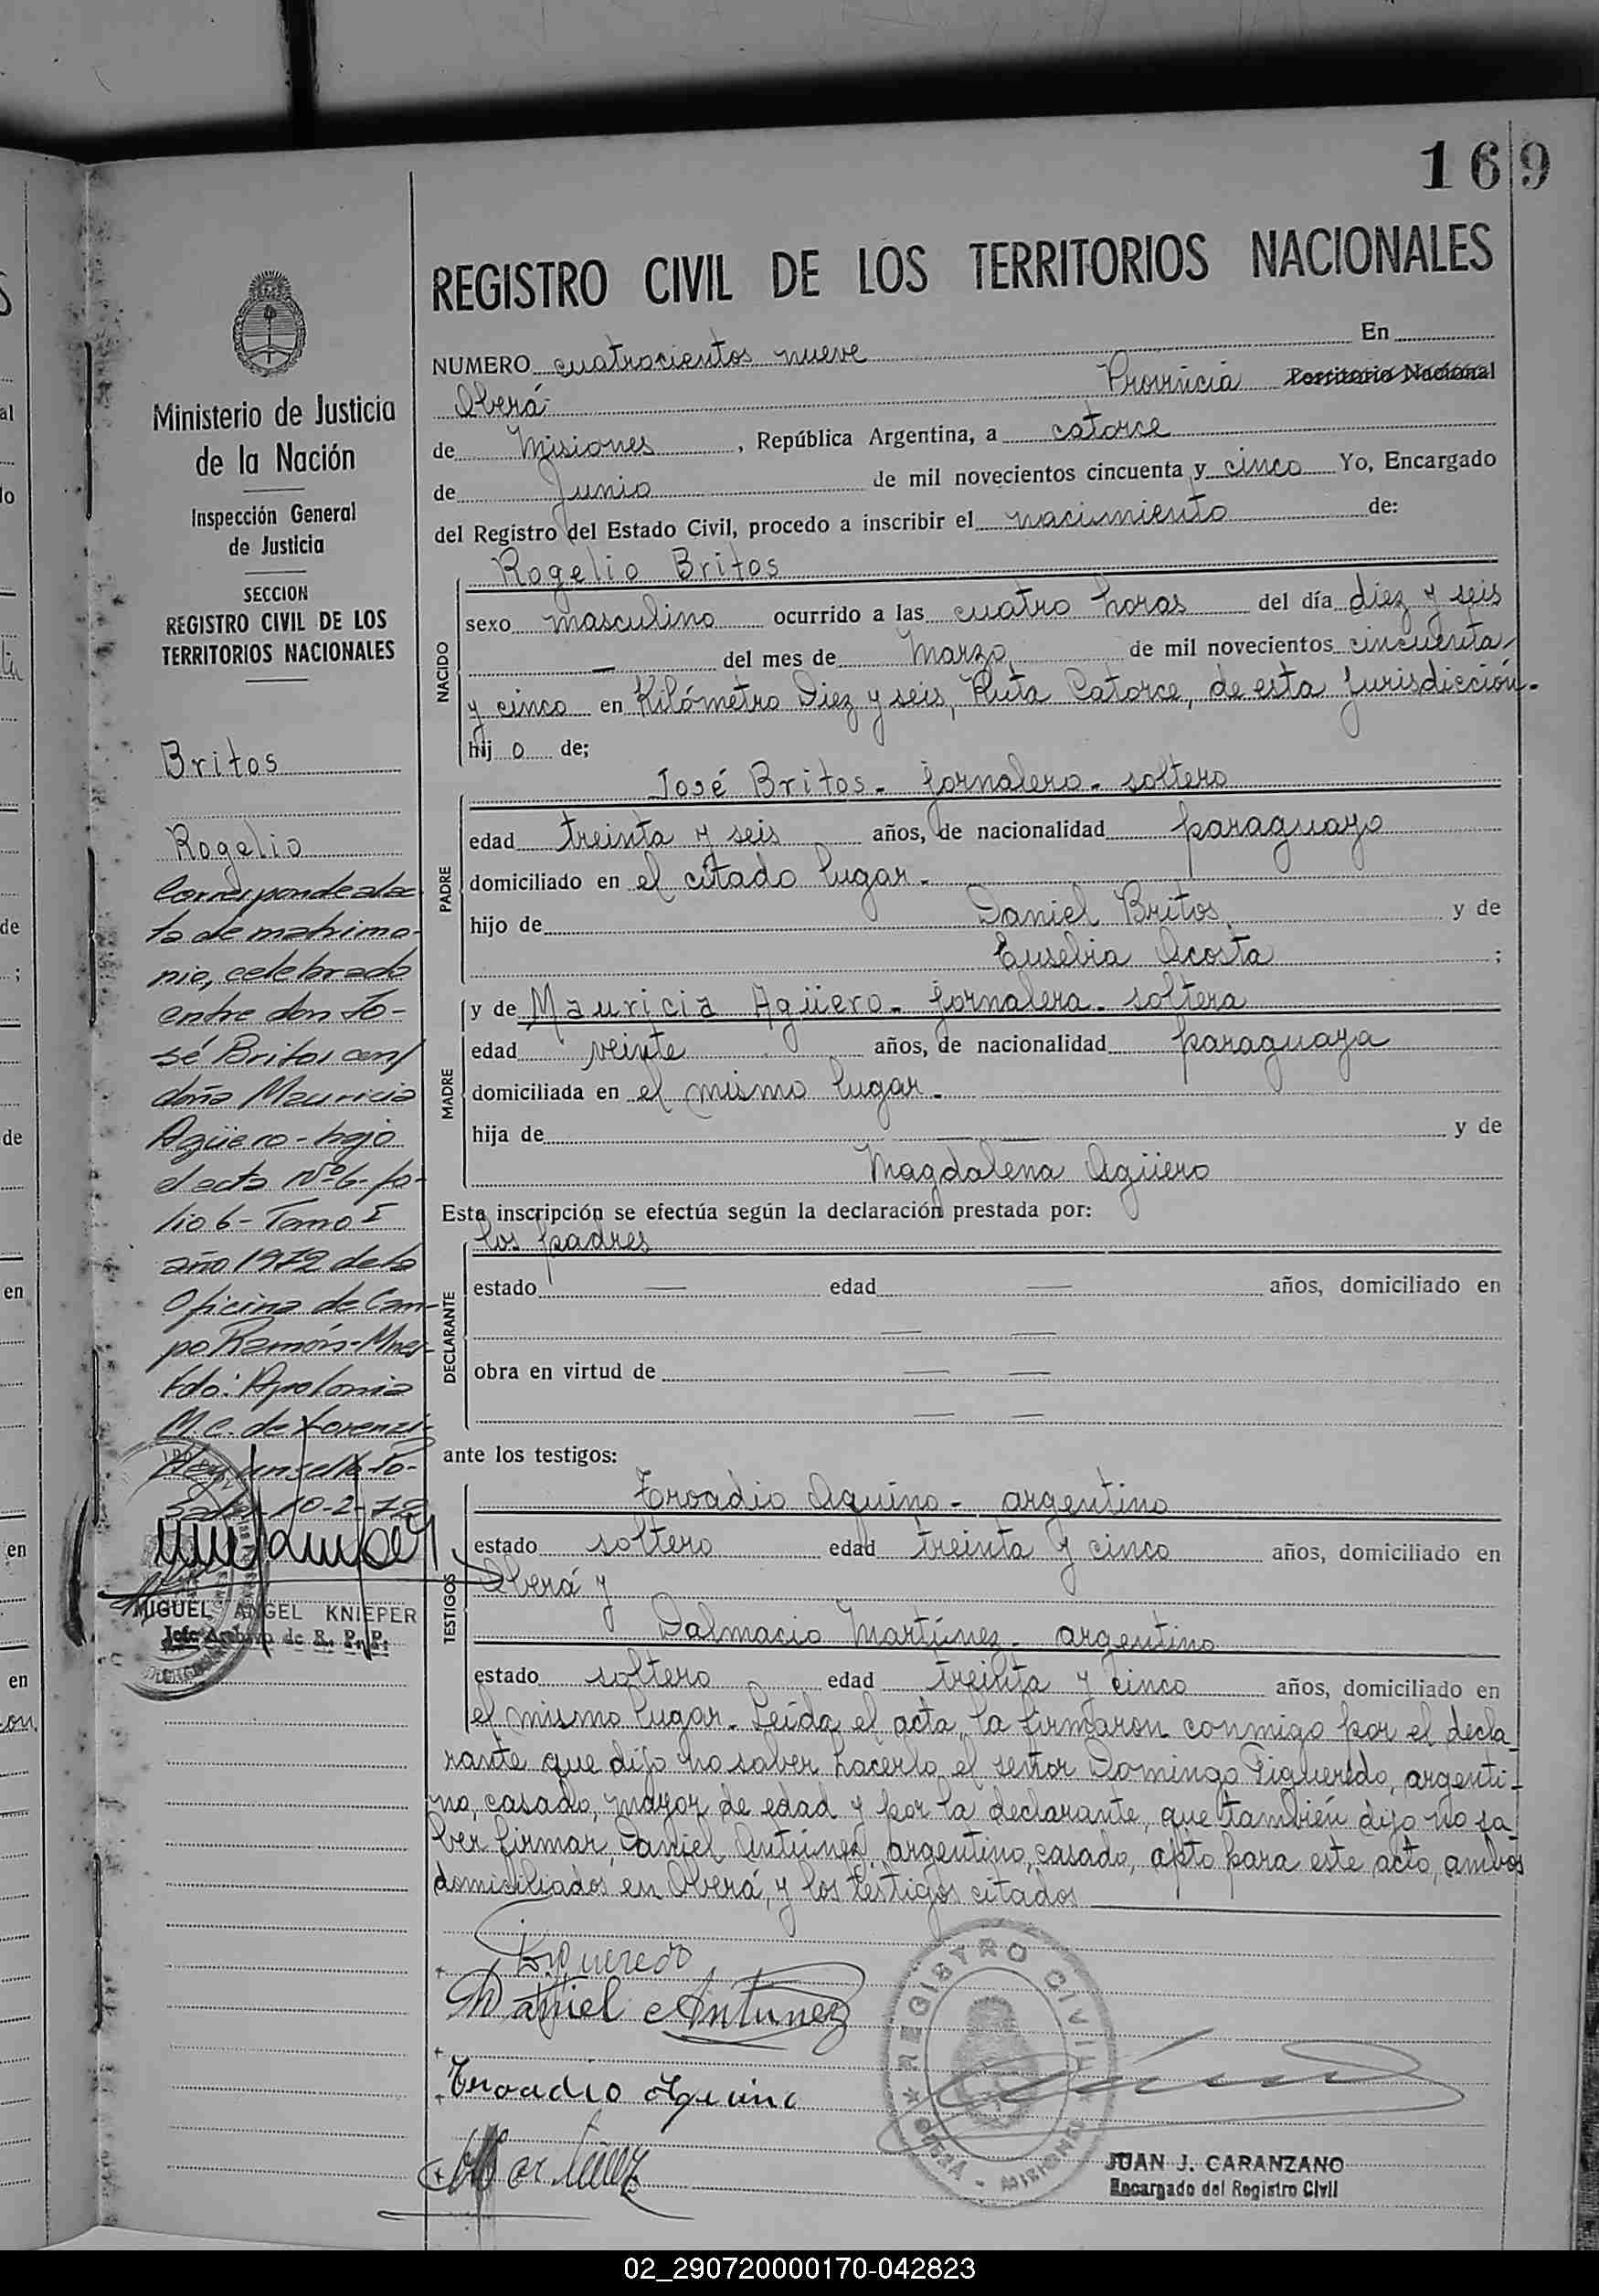 169
REGISTRO CIVIL DE LOS TERRITORIOS NACIONALES
Ministerio de Justicia
de la Nación
Inspección General
de Justicia
SECCION
REGISTRO CIVIL DE LOS
TERRITORIOS NACIONALES
Britos
Rogelio
Corresponde al ac
ta de matrimo-
nio, celebrado
entre don Jo-
sé Britos con
doña Mauricia
Agüero - bajo
el acta Nº 6- fo-
lio 6 - Tomo I
año 1972 de la
Oficina de Cam-
po Ramón - Mnes-
Fdo: Apolonia
M.C. de Lorenzi-
Hay un sello Po-
sadas 10-2-72
MIGUEL ANGEL KNIEPER
Jefe Archivo de R. P. P.
NUMERO cuatrocientos nueve En
Oberá- Provincia Territorio Nacional
de Misiones, República Argentina, a catorce
de Junio de mil novecientos cincuenta y cinco Yo, Encargado
del Registro del Estado Civil, procedo a inscribir el nacimiento de:
NACIDO
Rogelio Britos
sexo masculino ocurrido a las cuatro horas del día diez y seis
— del mes de Marzo de mil novecientos cincuenta
y cinco en Kilómetro Diez y seis, Ruta Catorce, de esta Jurisdicción.-
hij o de;
PADRE
José Britos - jornalero - soltero
edad treinta y seis años, de nacionalidad paraguayo
domiciliado en el citado lugar.-
hijo de Daniel Britos y de
Eusebia Acosta ;
MADRE
y de Mauricia Agüero - jornalera - soltera
edad veinte años, de nacionalidad paraguaya
domiciliada en el mismo lugar.-
hija de — — y de
Magdalena Agüero
Esta inscripción se efectúa según la declaración prestada por:
DECLARANTE
los padres
estado — edad — años, domiciliado en
— —
obra en virtud de — —
— —
ante los testigos:
TESTIGOS
Troadio Aquino - argentino
estado soltero edad treinta y cinco años, domiciliado en
Oberá y
Dalmacio Martínez - argentino
estado soltero edad treinta y cinco años, domiciliado en
el mismo lugar. Leída el acta, la firmaron conmigo por el decla-
rante que dijo no saber hacerlo el señor Domingo Figueredo, argenti-
no, casado, mayor de edad y por la declarante, que también dijo no sa-
ber firmar, Daniel Antúnez, argentino, casado, apto para este acto, ambos
domiciliados en Oberá, y los testigos citados
Figueredo
Daniel Antunez
Troadio Aquino
Martínez
REGISTRO CIVIL
OBERÁ - MISIONES
JUAN J. CARANZANO
Encargado del Registro Civil
02_290720000170-042823